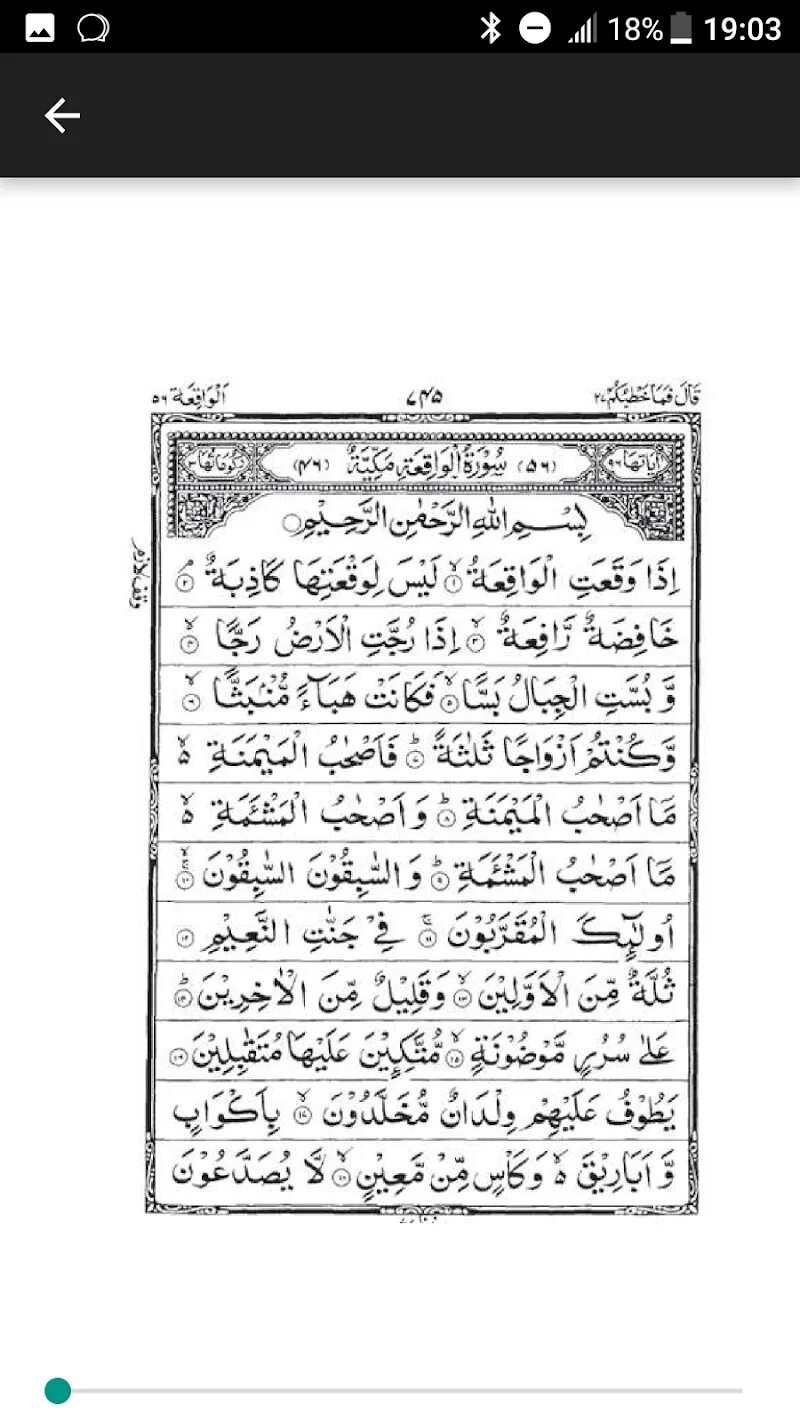 18% 19:03
قَالَ فَمَا خَطْبُكُمْ ٢٧ ٧٤٥ اَلْوَاقِعَة ٥٦
اٰيَاتُهَا ٩٦ (٥٦) سُوْرَةُ الْوَاقِعَةِ مَكِّيَّةٌ (٤٦) رُكُوْعَاتُهَا ٣
بِسْمِ اللهِ الرَّحْمٰنِ الرَّحِيْمِ
اِذَا وَقَعَتِ الْوَاقِعَةُ ۙ﴿١﴾ لَيْسَ لِوَقْعَتِهَا كَاذِبَةٌ ۘ﴿٢﴾
وقف لازم
خَافِضَةٌ رَّافِعَةٌ ۙ﴿٣﴾ اِذَا رُجَّتِ الْاَرْضُ رَجًّا ۙ﴿٤﴾
وَّ بُسَّتِ الْجِبَالُ بَسًّا ۙ﴿٥﴾ فَكَانَتْ هَبَآءً مُّنْۢبَثًّا ۙ﴿٦﴾
وَّكُنْتُمْ اَزْوَاجًا ثَلٰثَةً ؕ﴿٧﴾ فَاَصْحٰبُ الْمَيْمَنَةِ ۙ٥
مَاۤ اَصْحٰبُ الْمَيْمَنَةِ ؕ﴿٨﴾ وَ اَصْحٰبُ الْمَشْئَمَةِ ۙ٥
مَاۤ اَصْحٰبُ الْمَشْئَمَةِ ؕ﴿٩﴾ وَ السّٰبِقُوْنَ السّٰبِقُوْنَ ۚۙ﴿١٠﴾
اُولٰٓئِكَ الْمُقَرَّبُوْنَ ۚ﴿١١﴾ فِيْ جَنّٰتِ النَّعِيْمِ ﴿١٢﴾
ثُلَّةٌ مِّنَ الْاَوَّلِيْنَ ۙ﴿١٣﴾ وَ قَلِيْلٌ مِّنَ الْاٰخِرِيْنَ ؕ﴿١٤﴾
عَلٰى سُرُرٍ مَّوْضُوْنَةٍ ۙ﴿١٥﴾ مُّتَّكِـِٕيْنَ عَلَيْهَا مُتَقٰبِلِيْنَ ﴿١٦﴾
يَطُوْفُ عَلَيْهِمْ وِلْدَانٌ مُّخَلَّدُوْنَ ۙ﴿١٧﴾ بِاَكْوَابٍ
وَّ اَبَارِيْقَ ۙ٥ وَ كَاْسٍ مِّنْ مَّعِيْنٍ ۙ﴿١٨﴾ لَّا يُصَدَّعُوْنَ